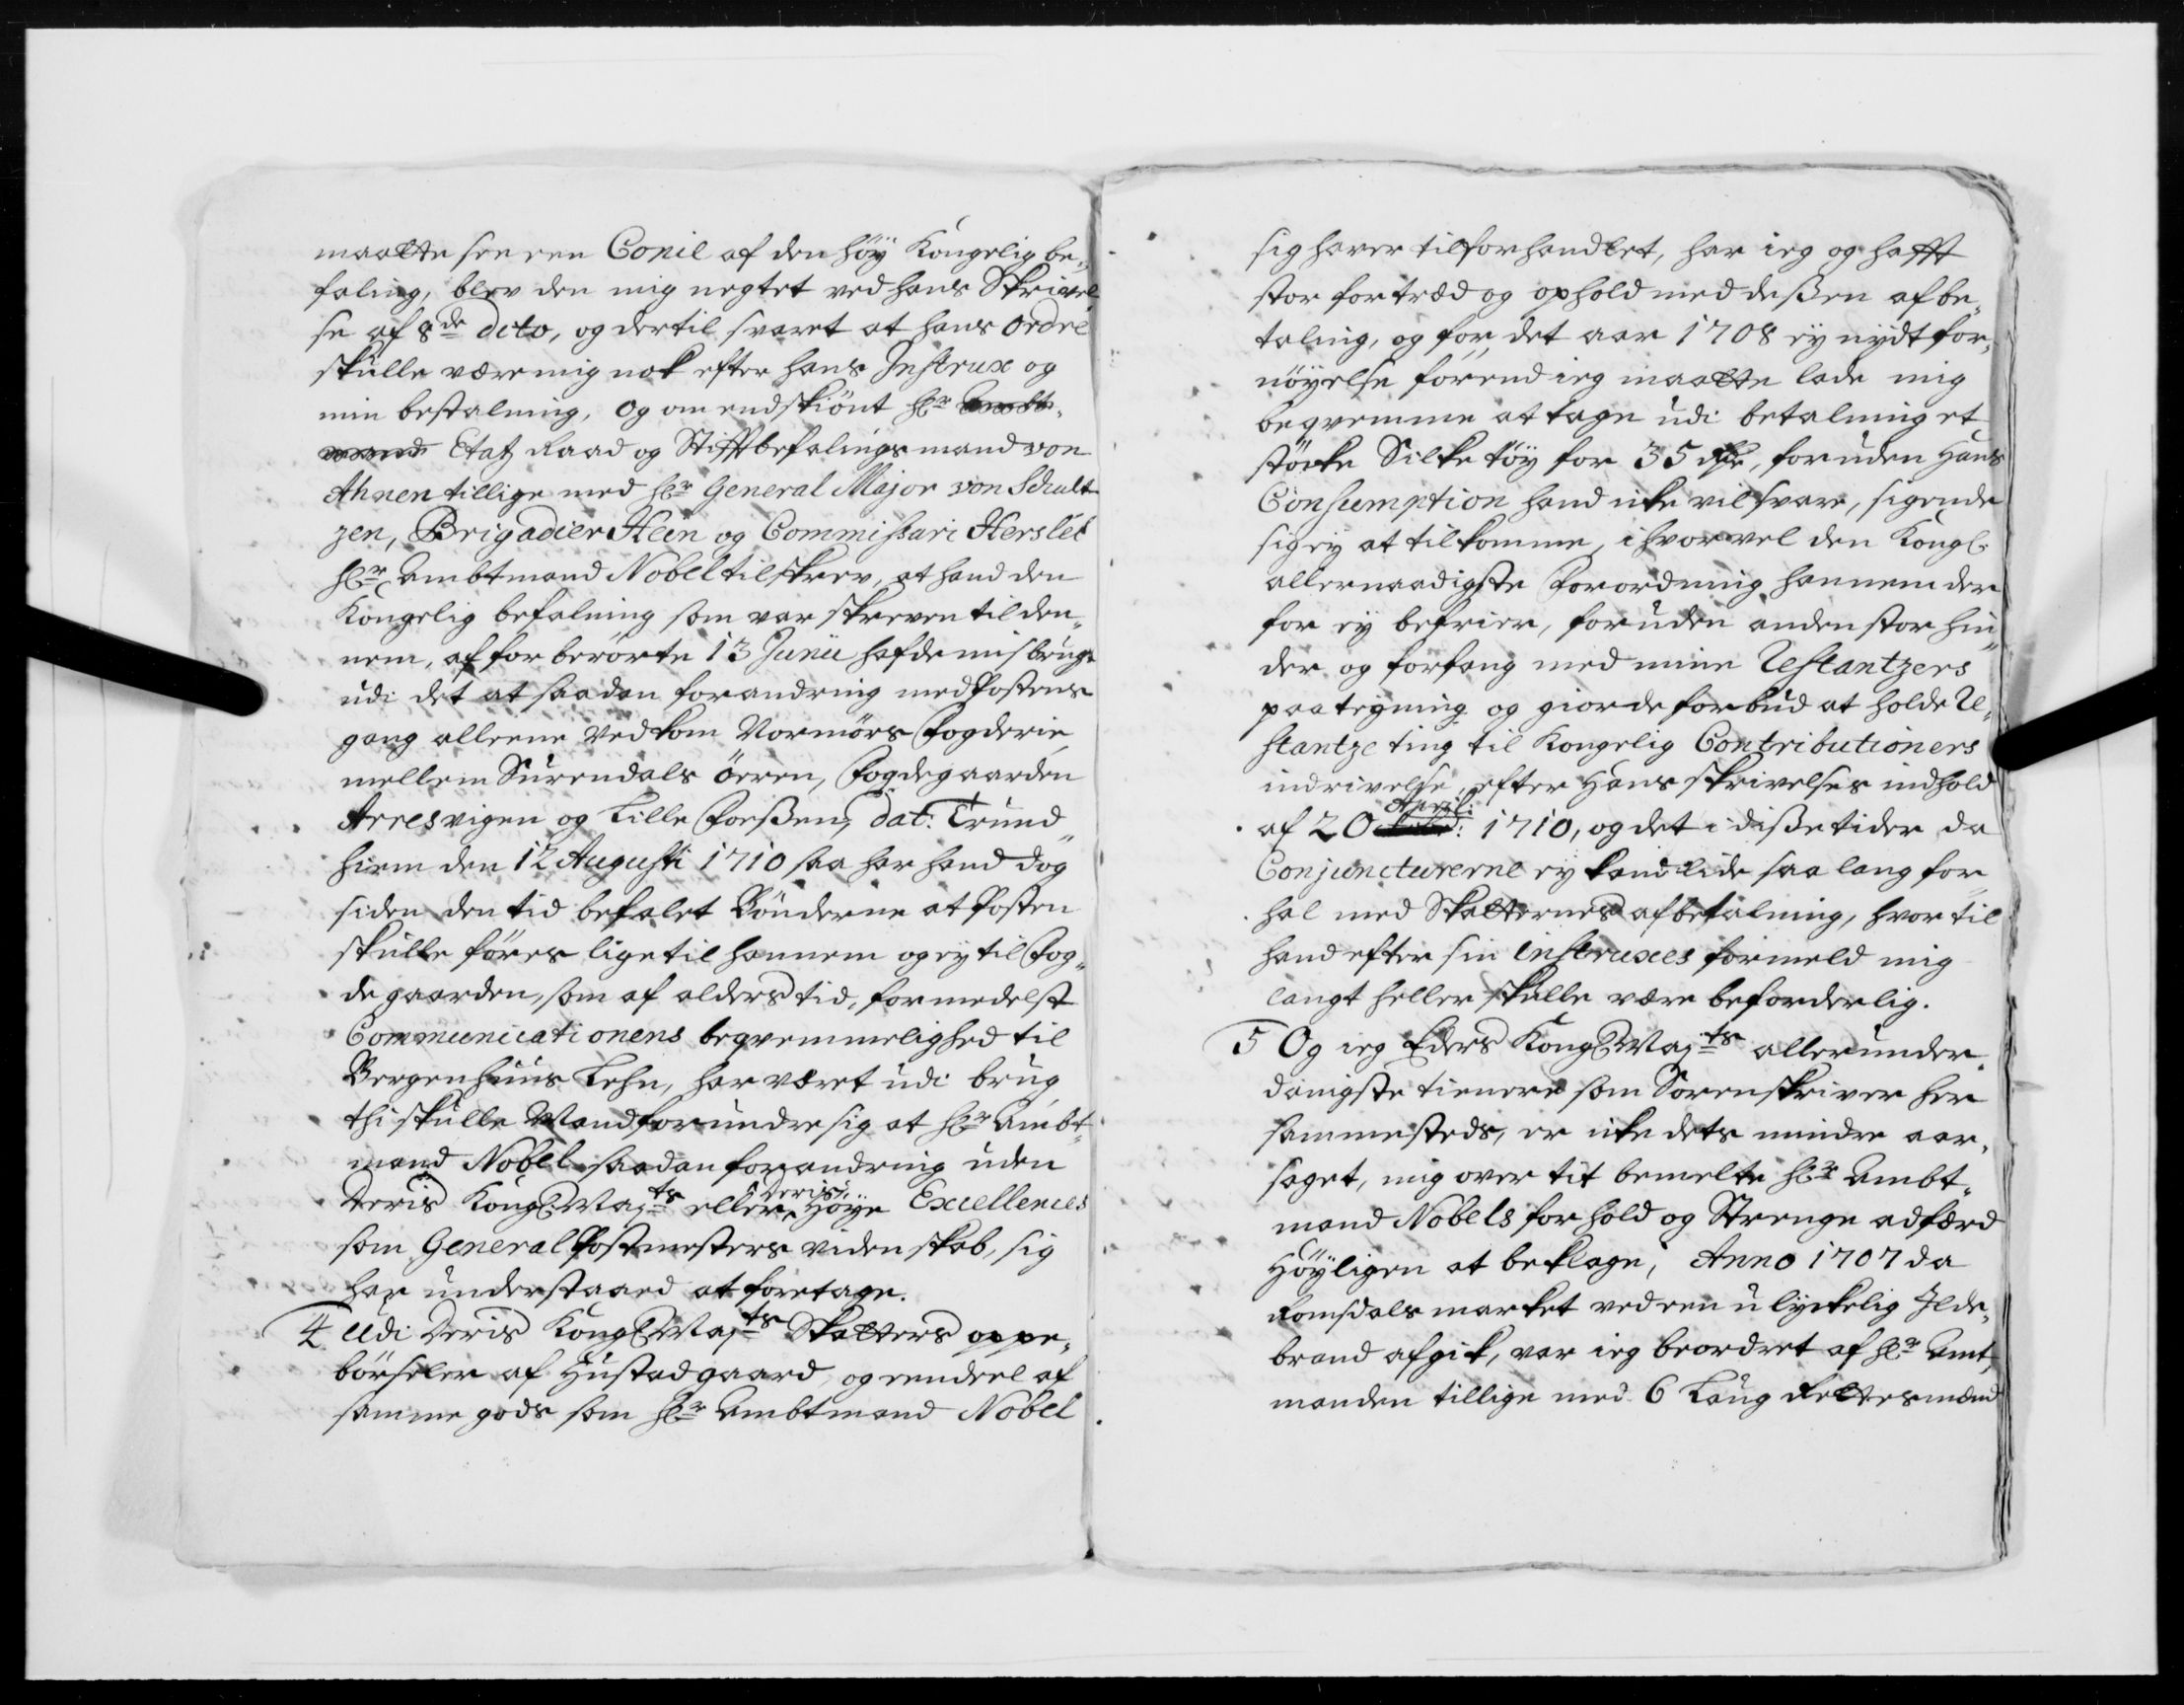 maatte see een Copie af den høy Kongelig be„
faling, blev den mig negtet ved hans Skrivel
se af 8de dito, og dertil svaret at hans ordre
skulle være mig nok efter hans Instrux og
min bestalning, og om endskiønt hr Ambt„
mand Etatz Raad og Stifftbefalingsmand von
Ahnen tillige med hr General Major von Schult
zen, Brigadier Hein og Commissari Hersleb
hr Ambtmand Nobel tilskrev, at hand den
Kongelig befalning som var skreven til den„
nem, af for berørte 13 Junii hafde misbrugt
udi det at saadan forandring med Postens
gang alleene Vedkom Normørs Fogderie
mellem Surendals øeren, Fogdegaarden
Arresvigen og Lille Forßen, dat: Trund„
hiem den 12 Augusti 1710 saa har hand dog
siden den tid befalet Bønderne at Posten
skulle føres lige til hannem og ey til Fog„
degaarden, som af alders tid, formedelst
Communicationens beqvemmelighed til
Bergenhuus Lehn, har været udi brug,
thi skulle Mand forundre sig at hr Ambt„
mand Nobel saadan forandring uden
Deris Kongl Mayts eller Deris Høye Excellences
som General Postmesters videnskab, sig
har understaaed at foretage.
4 Udi Deris Kongl Mayts Skatters oppe„
børseler af Hustad gaard, og eendeel af
samme gods som hr Ambtmand Nobel
sig haver tilforhandlet, har ieg og hafft
stor fortræd og ophold med deßen afbe„
taling, og for det aar 1708 ey nydt for„
nøyelse førend ieg maatte lade mig
beqvemme at tage udi betalning et
støcke Silke tøy for 35 rdr, foruden Hans
Consumption hand icke vil svare, sigende
sig ey at tilkomme, ihvorvel den Kongl.
allernaadigste Forordning hannem der
for ey befrier, foruden anden stor hin„
der og forfang med mine Restantzers
paategning og giorde forbud at holde Re„
stantze ting til Kongelig Contributioners
inddrivelse, efter Hans skrivelses indhold
af 20 April: 1710, og det i diße tider da
Conjuncturerne ey kand lide saa lang for„
hal med Skatternes afbetalning, hvor til
hand efter sin instruxes formeld mig
langt heller skulle være beforderlig.
5 Og ieg Eders Kongl Mayts allerunder„
danigste tienere som Sorenskriver her
sammesteds, er icke dets mindre aar„
saget, mig over tit bemelte hr Ambt„
mand Nobels forhold og Strenge adfærd
Høyligen at beklage, Anno 1707 da
Romsdals market ved een ulyckelig Ilde„
brand afgik, var ieg beordret af hr Amt„
manden tillige med 6 Laug Rettesmænd